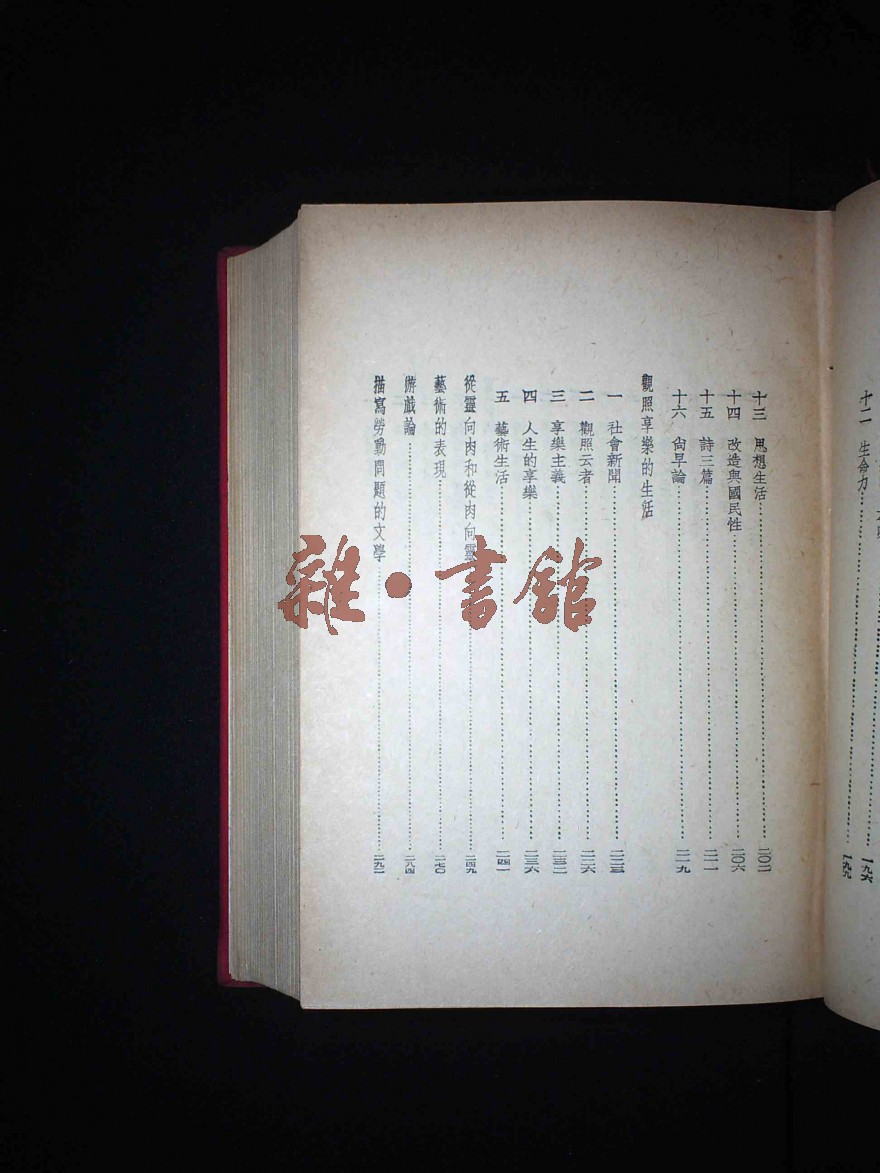 十二 生命力……一九六
一九九
十三 思想生活……二〇二
十四 改造與國民性……二〇六
十五 詩三篇……二一一
十六 尙早論……二一九
觀照享樂的生活
一 社會新聞……二二三
二 觀照云者……二二六
三 享樂主義……二三二
四 人生的享樂……二三六
五 藝術生活……二四一
從靈向肉和從肉向靈……二四九
藝術的表現……二七〇
游戲論……二八四
描寫勞動問題的文學……二九二
雜·書館